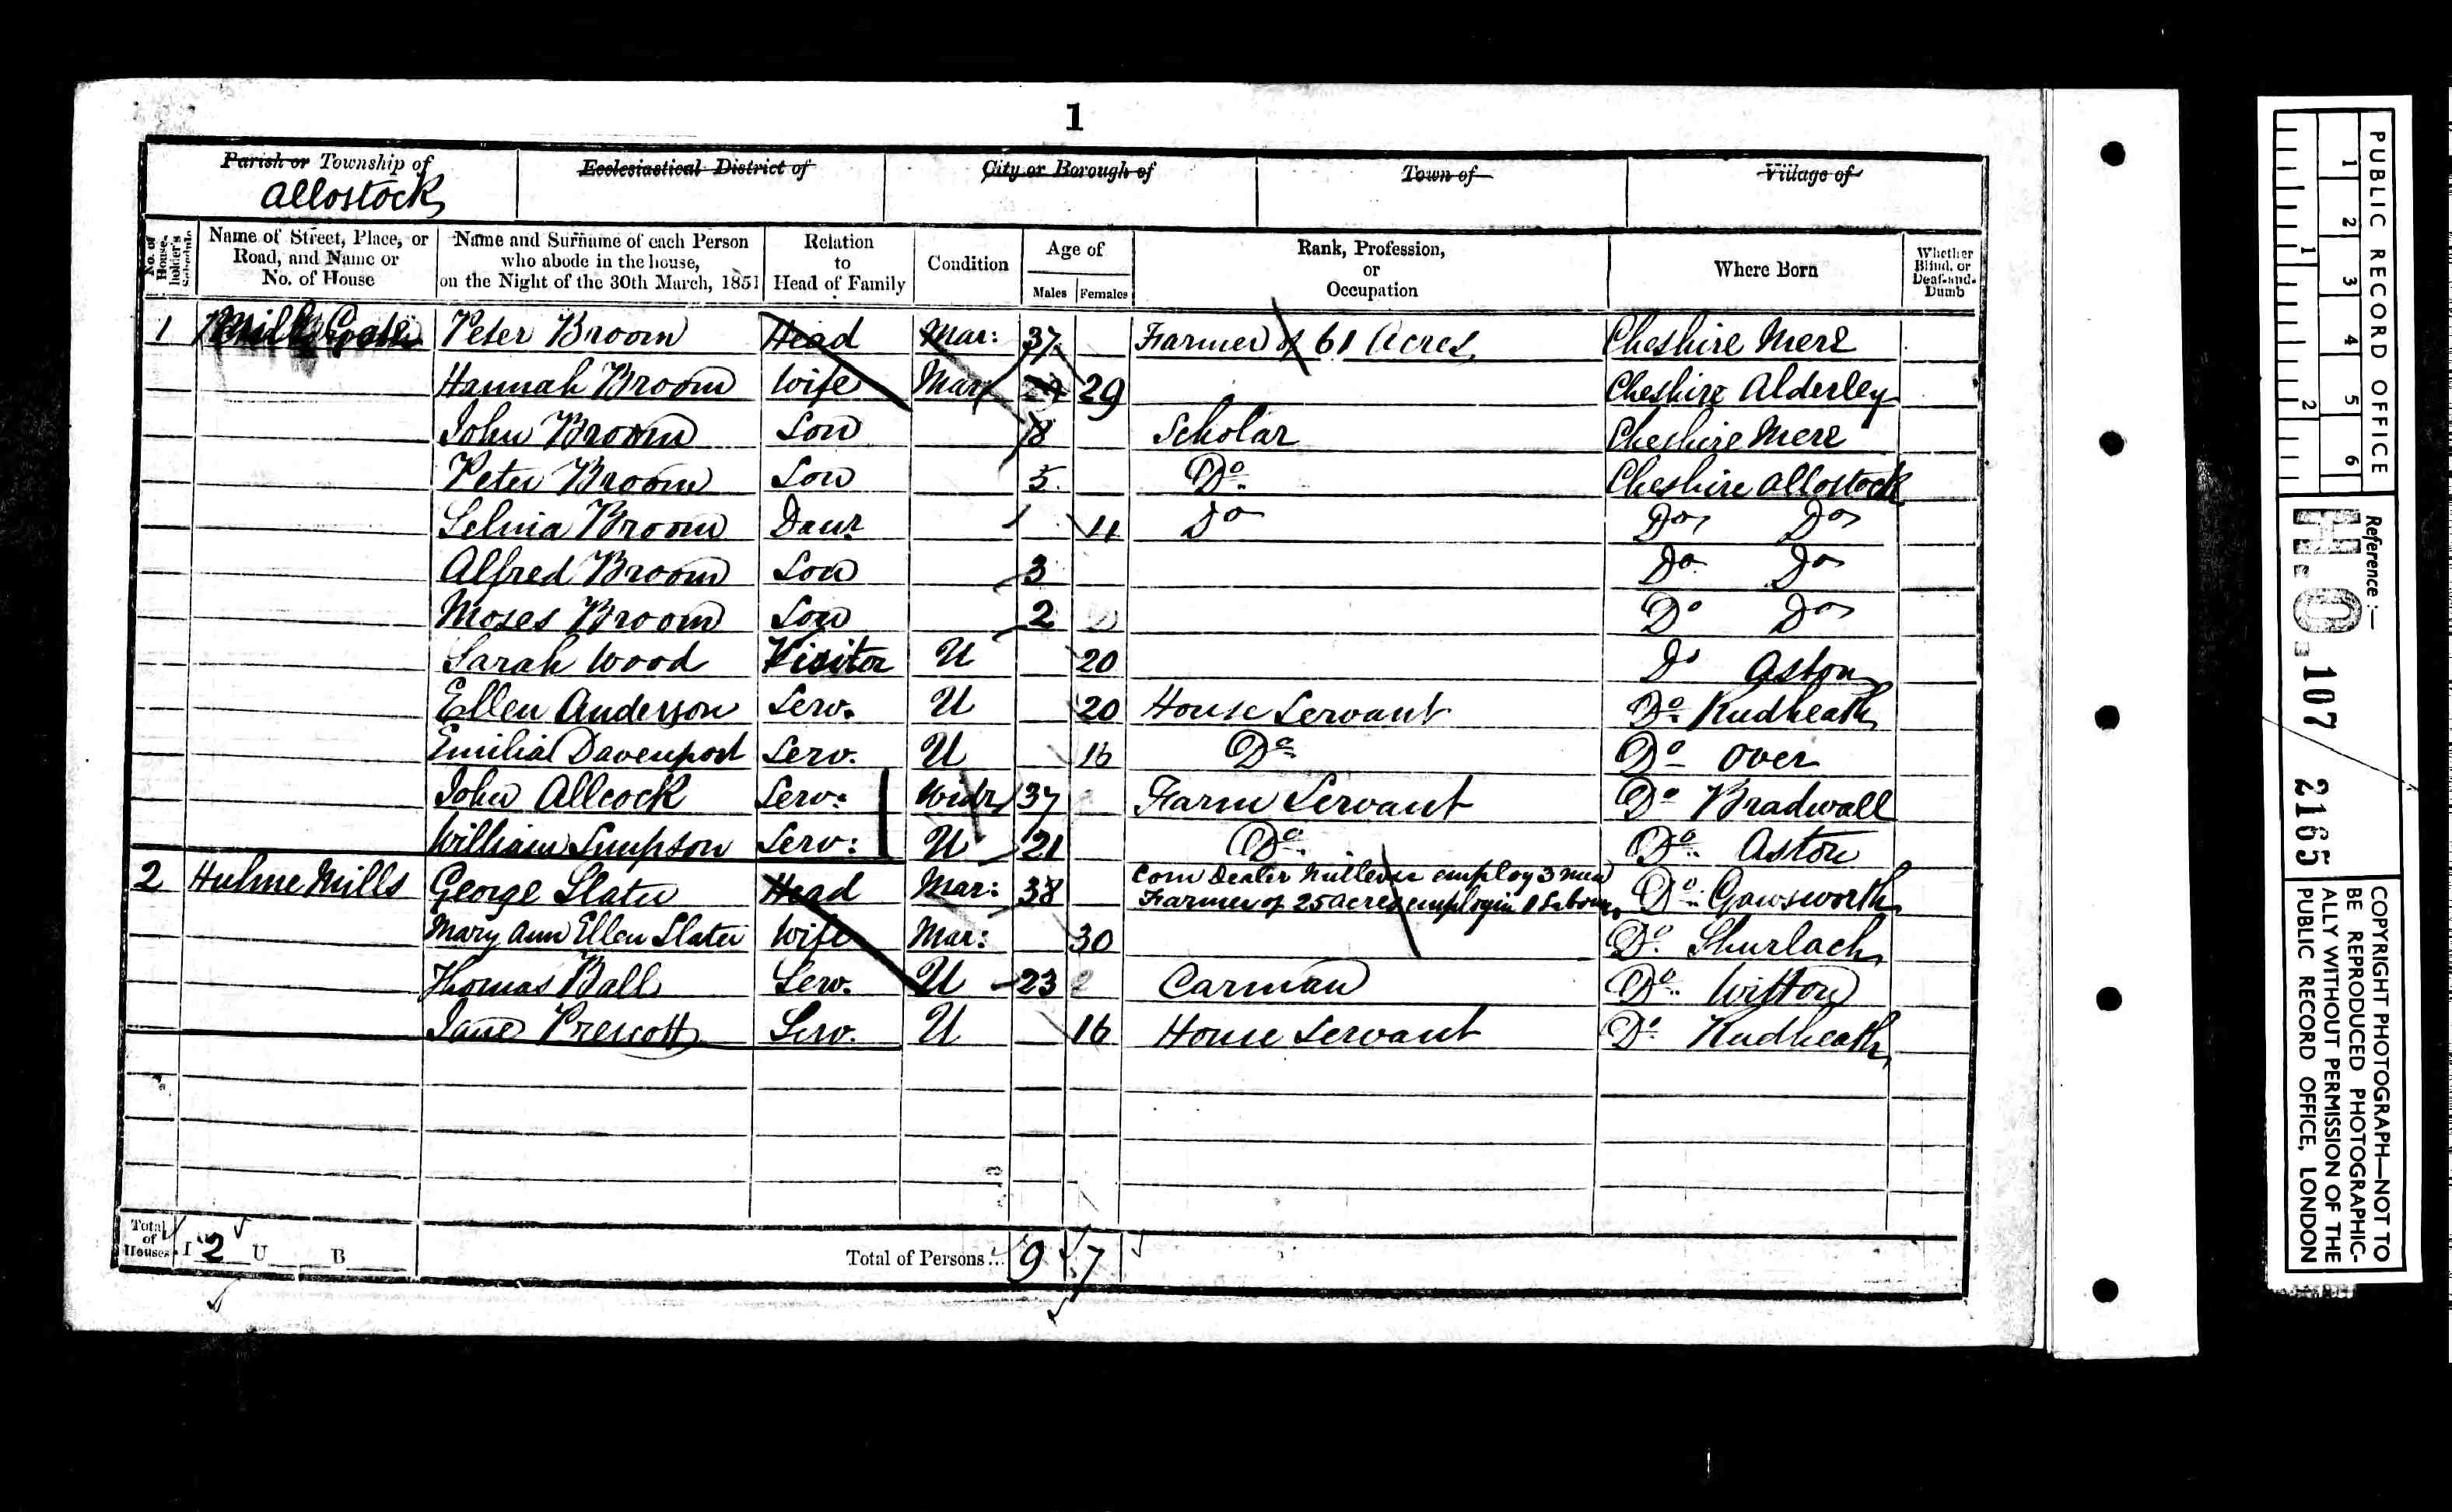 1
Parish or Township of
Allostock
Ecclesiastical District of
City or Borough of
Town of
Village of
No. of House-holder's Schedule
Name of Street, Place, or Road, and Name or No. of House
Name and Surname of each Person who abode in the house, on the Night of the 30th March, 1851
Relation to Head of Family
Condition
Age of
Males
Females
Rank, Profession, or Occupation
Where Born
Whether Blind, or Deaf-and-Dumb
1 Peter Broom Head Mar: 37 Farmer of 61 Acres Cheshire Mere
Hannah Broom Wife Mar 29 Cheshire Alderley
John Broom Son 8 Scholar Cheshire Mere
Peter Broom Son 5 Do. Cheshire Allostock
Selina Broom Daur 4 Do Do Do
Alfred Broom Son 3 Do Do
Moses Broom Son 2 Do Do
Sarah Wood Visitor U 20 Do Aston
Ellen Anderson Serv. U 20 House Servant Do. Rudheath
Emilia Davenport Serv. U 16 Do Do Over
John Allcock Serv: Widr 37 Farm Servant Do Bradwall
William Simpson Serv: U 21 Do. Do. Aston
2 Hulme Mills George Slater Head Mar: 38 Corn Dealer employ 3 men Do. Gawsworth
Farmer of 25 acres employin 1 Labour
Mary Ann Ellen Slater Wife Mar: 30 Do. Shurlach
Thomas Ball Serv. U 23 Carman Do. Witton
Jane Prescott Serv. U 16 House Servant Do. Rudheath
Total of Houses I 2 U B
Total of Persons... 9 7
PUBLIC RECORD OFFICE
1 2 3 4 5 6
1 2
Reference:—
H.O. 107 2165
COPYRIGHT PHOTOGRAPH—NOT TO
BE REPRODUCED PHOTOGRAPHIC-
ALLY WITHOUT PERMISSION OF THE
PUBLIC RECORD OFFICE, LONDON